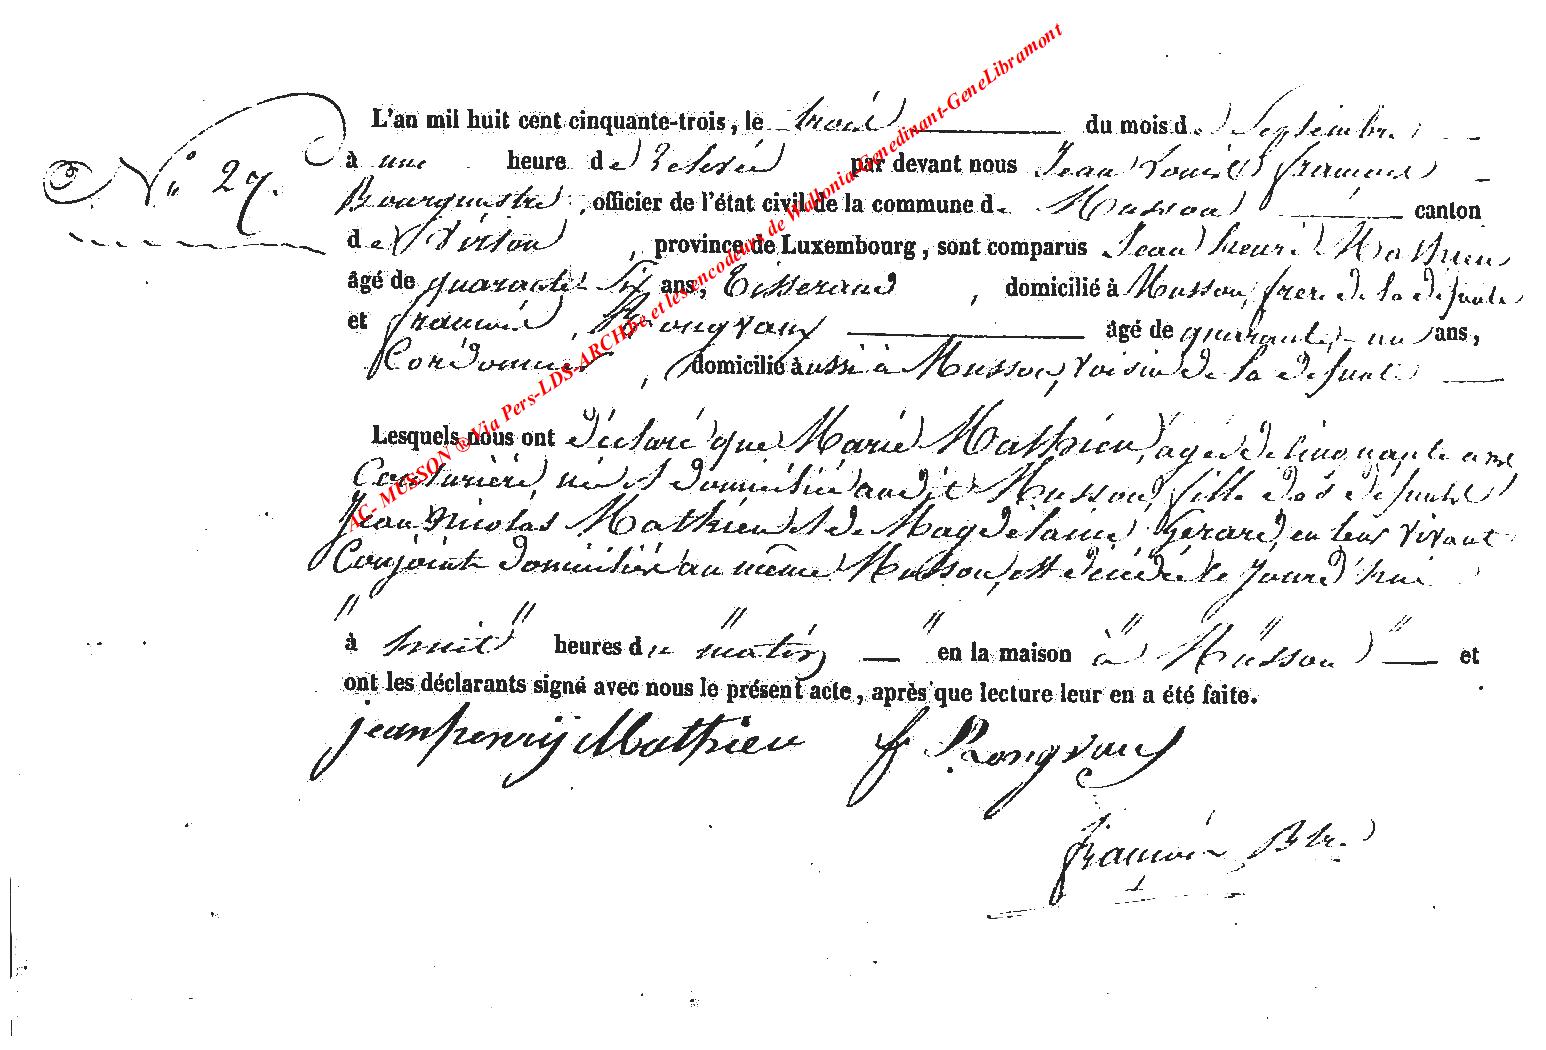 N° 27.
L'an mil huit cent cinquante-trois, le trois du mois de Septembre
à une heure de Relevée par devant nous Jean Louis françois
Bourguestre, officier de l'état civil de la commune de Musson canton
de Virton, province de Luxembourg, sont comparus Jean henri Mathieu
âgé de quarante Six ans, Tisserand, domicilié à Musson, frère de la défunte
et françois Rongvaux âgé de quarante un ans,
Cordonnier, domicilié aussi à Musson, voisin de la défunte
Lesquels nous ont déclaré que Marie Mathieu, agée de cinquante ans
Couturière née et domiciliée audit Musson, fille des défunts
Jean Nicolas Mathieu et de Magdelaine Gérard, en leur vivant
Conjoints domiciliés au même Musson, est décédée le jourd'hui
" " " " " " "
à huit heures du matin en la maison à Musson et
ont les déclarants signé avec nous le présent acte, après que lecture leur en a été faite.
jean henry Mathieu f Rongvaux
françois Btre
AC- MUSSON ® Via Pers-LDS-ARCHbe et les encodeurs de Wallonia-Genedinant-GeneLibramont